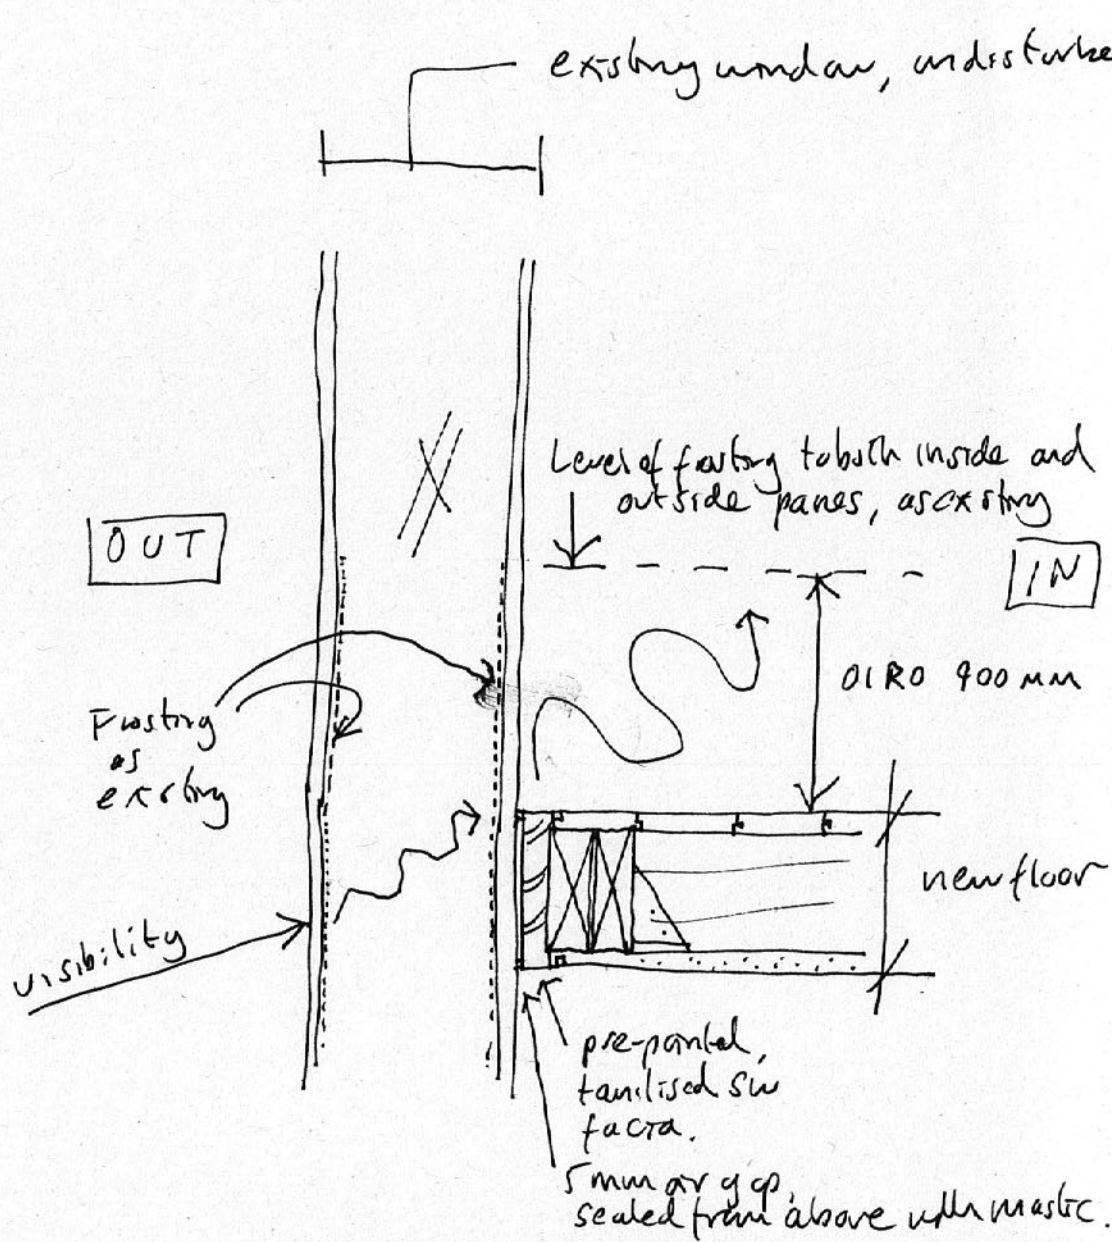 existing window, undisturbe
Level of frosting to both inside and
outside panes, as existing
OUT
IN
OIRO 900 mm
Frosting
as
existing
new floor
visibility
pre-painted,
tanilised sw
facia.
5mm air gap,
sealed from above with mastic.